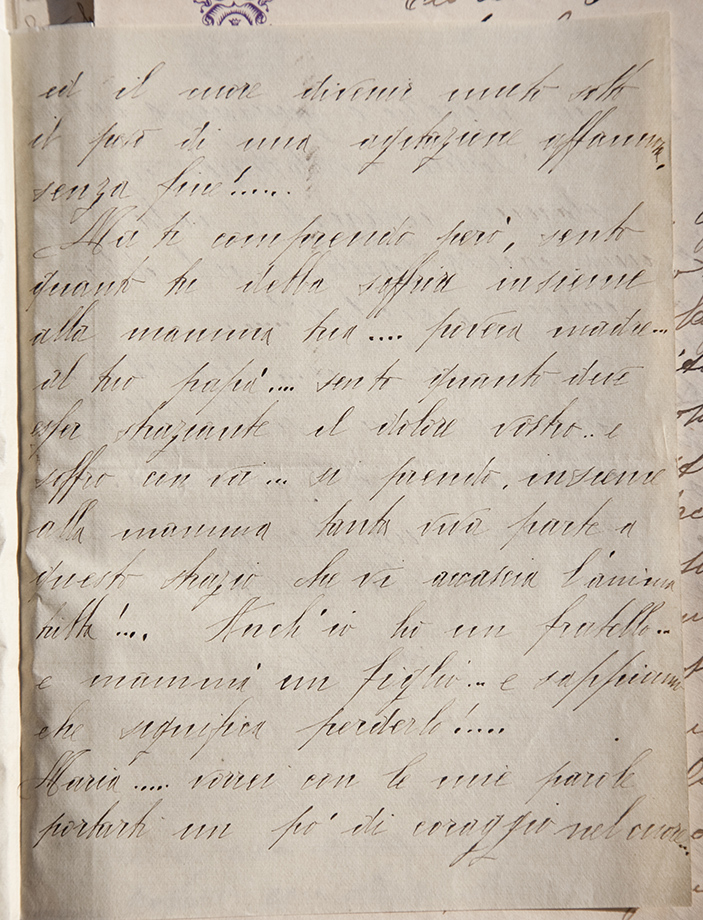 ed il cuore divenir muto sotto
il peso di una agitazione affannosa,
senza fine!.....
Ma ti comprendo però, sento
quanto tu debba soffrire insieme
alla mamma tua.... povera madre...
al tuo papà.... sento quanto deve
esser straziante il dolore vostro.. e
soffro con voi... si prendo, insieme
alla mamma tanta viva parte a
questo strazio che vi accascia l'anima
tutta!... Anch'io ho un fratello..
e mamma un figlio... e sappiamo
che significa perderlo!.....
Maria..... vorrei con le mie parole
portarti un po' di coraggio nel cuore...